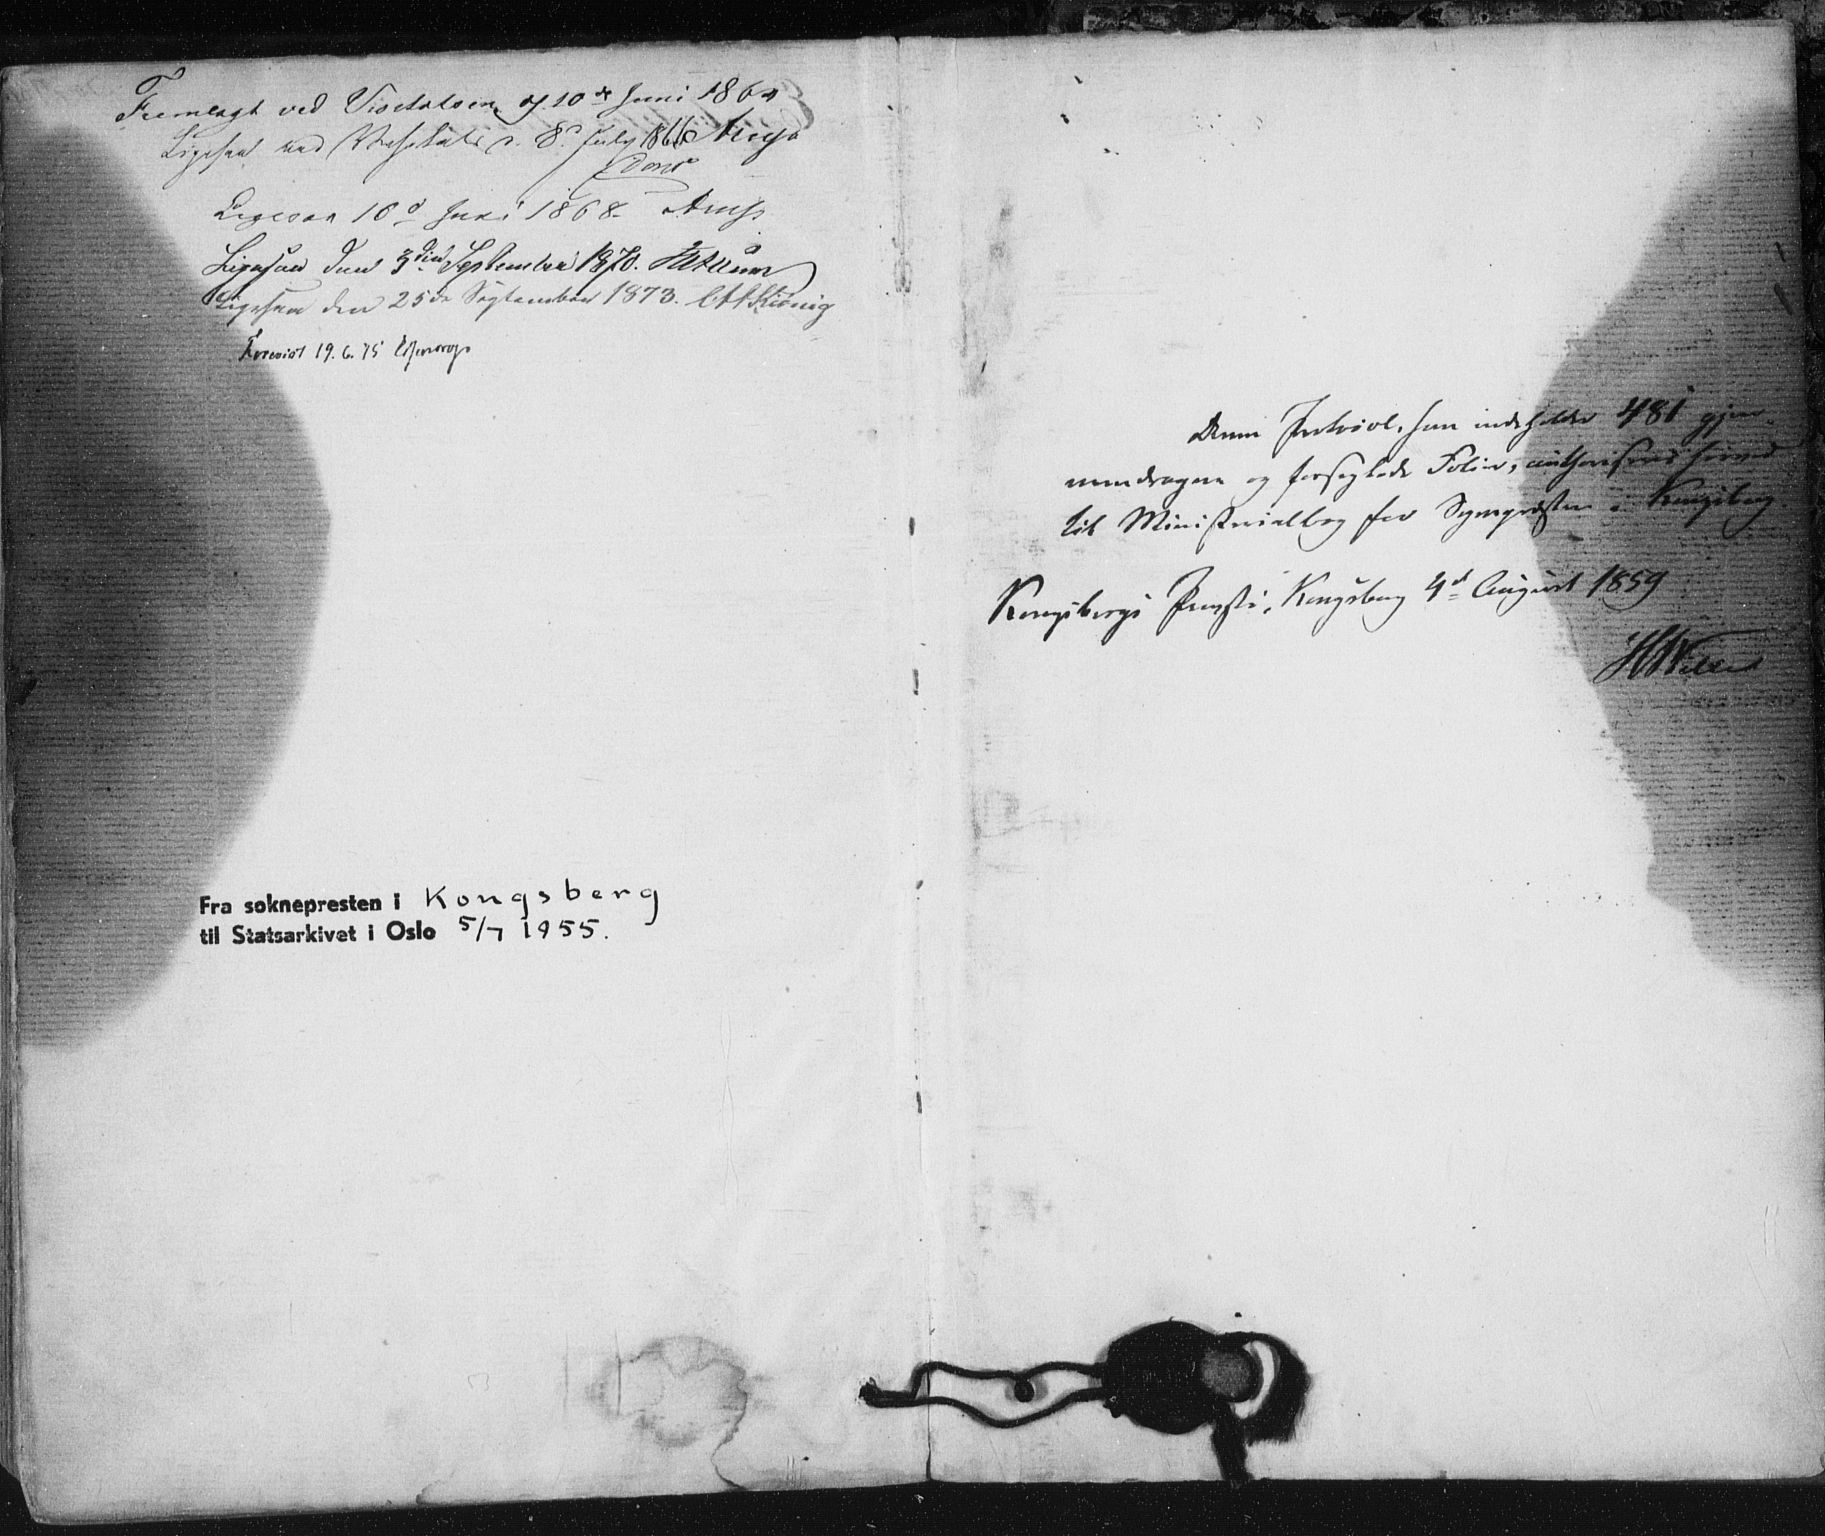 Fremlagt ved Visitatsen d 10de Juni 1864
Ligesaa ved Visitats d. 8de July 1866 Arup
Ligesaa 10d Juni 1868. Arup
Ligesaa den 3die September 1870.
Ligesaa den 25de September 1873.
Forevist 19.6.75
Fra soknepresten i Kongsberg
til Statsarkivet i Oslo 5/7 1955.
Denne Protocol, som indeholder 481 gjen-
nemdragne og forseglede Folier, authoriseres herved
til Ministerialbog for Sognepræsten i Kongsberg.
Kongsbergs Provsti, Kongsberg 4d August 1859